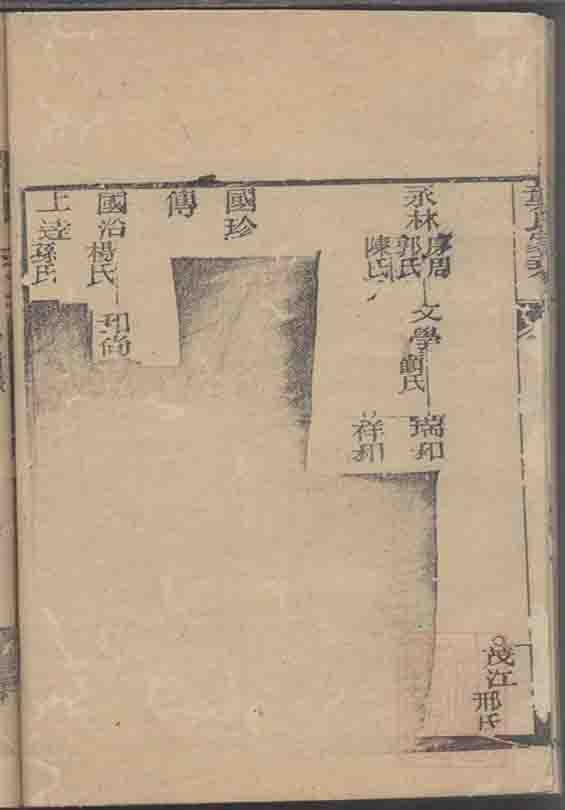 茂江
邢氏
永林
周
郭氏
陳氏
文學
瑞和
祥和
國珍
傳
國治
楊氏
和尚
上達
孫氏